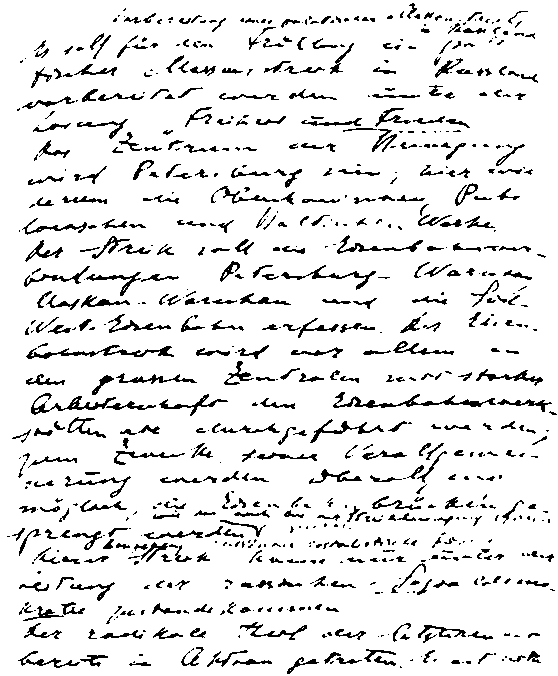 Vorbereitung eines politischen Massenstreiks
in Russland
Es soll für den Frühling ein poli
tischer Massenstreik in Russland
vorbereitet werden unter der
Losung Freiheit und Frieden
Das Zentrum der Bewegung
wird Petersburg sein, hier wie
derum die Obuchowschen, Puti
lowschen und Baltischen Werke.
Der Streik soll die Eisenbahnver-
bindungen Petersburg-Warschau
Moskau-Warschau und die Süd-
West-Eisenbahn erfassen. Der Eisen
bahnstreik wird vor allem in
den grossen Zentralen mit starker
Arbeiterschaft den Eisenbahnwerk-
stätten etc durchgeführt werden;
zum Zwecke seiner Verallgemei-
nerung werden überall wo
möglich, die Eisenbahnbrücken ge-
sprengt werden
Dieser Streik kann nur unter der
Leitung der russischen Sozialdemo-
kratie zustandekommen
Der radikale Teil der letzteren
bereit in Aktion getreten. Es ist